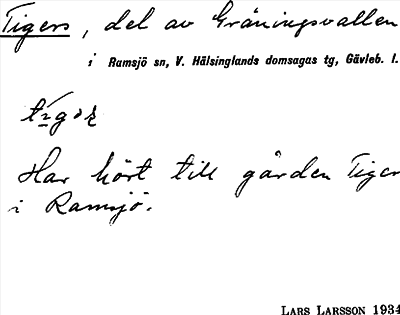 Tigers, del av Gräningsvallen
i Ramsjö sn, V. Hälsinglands domsagas tg, Gävleb. l.
Har hört till gården Tiger
i Ramsjö.
LARS LARSSON 1934